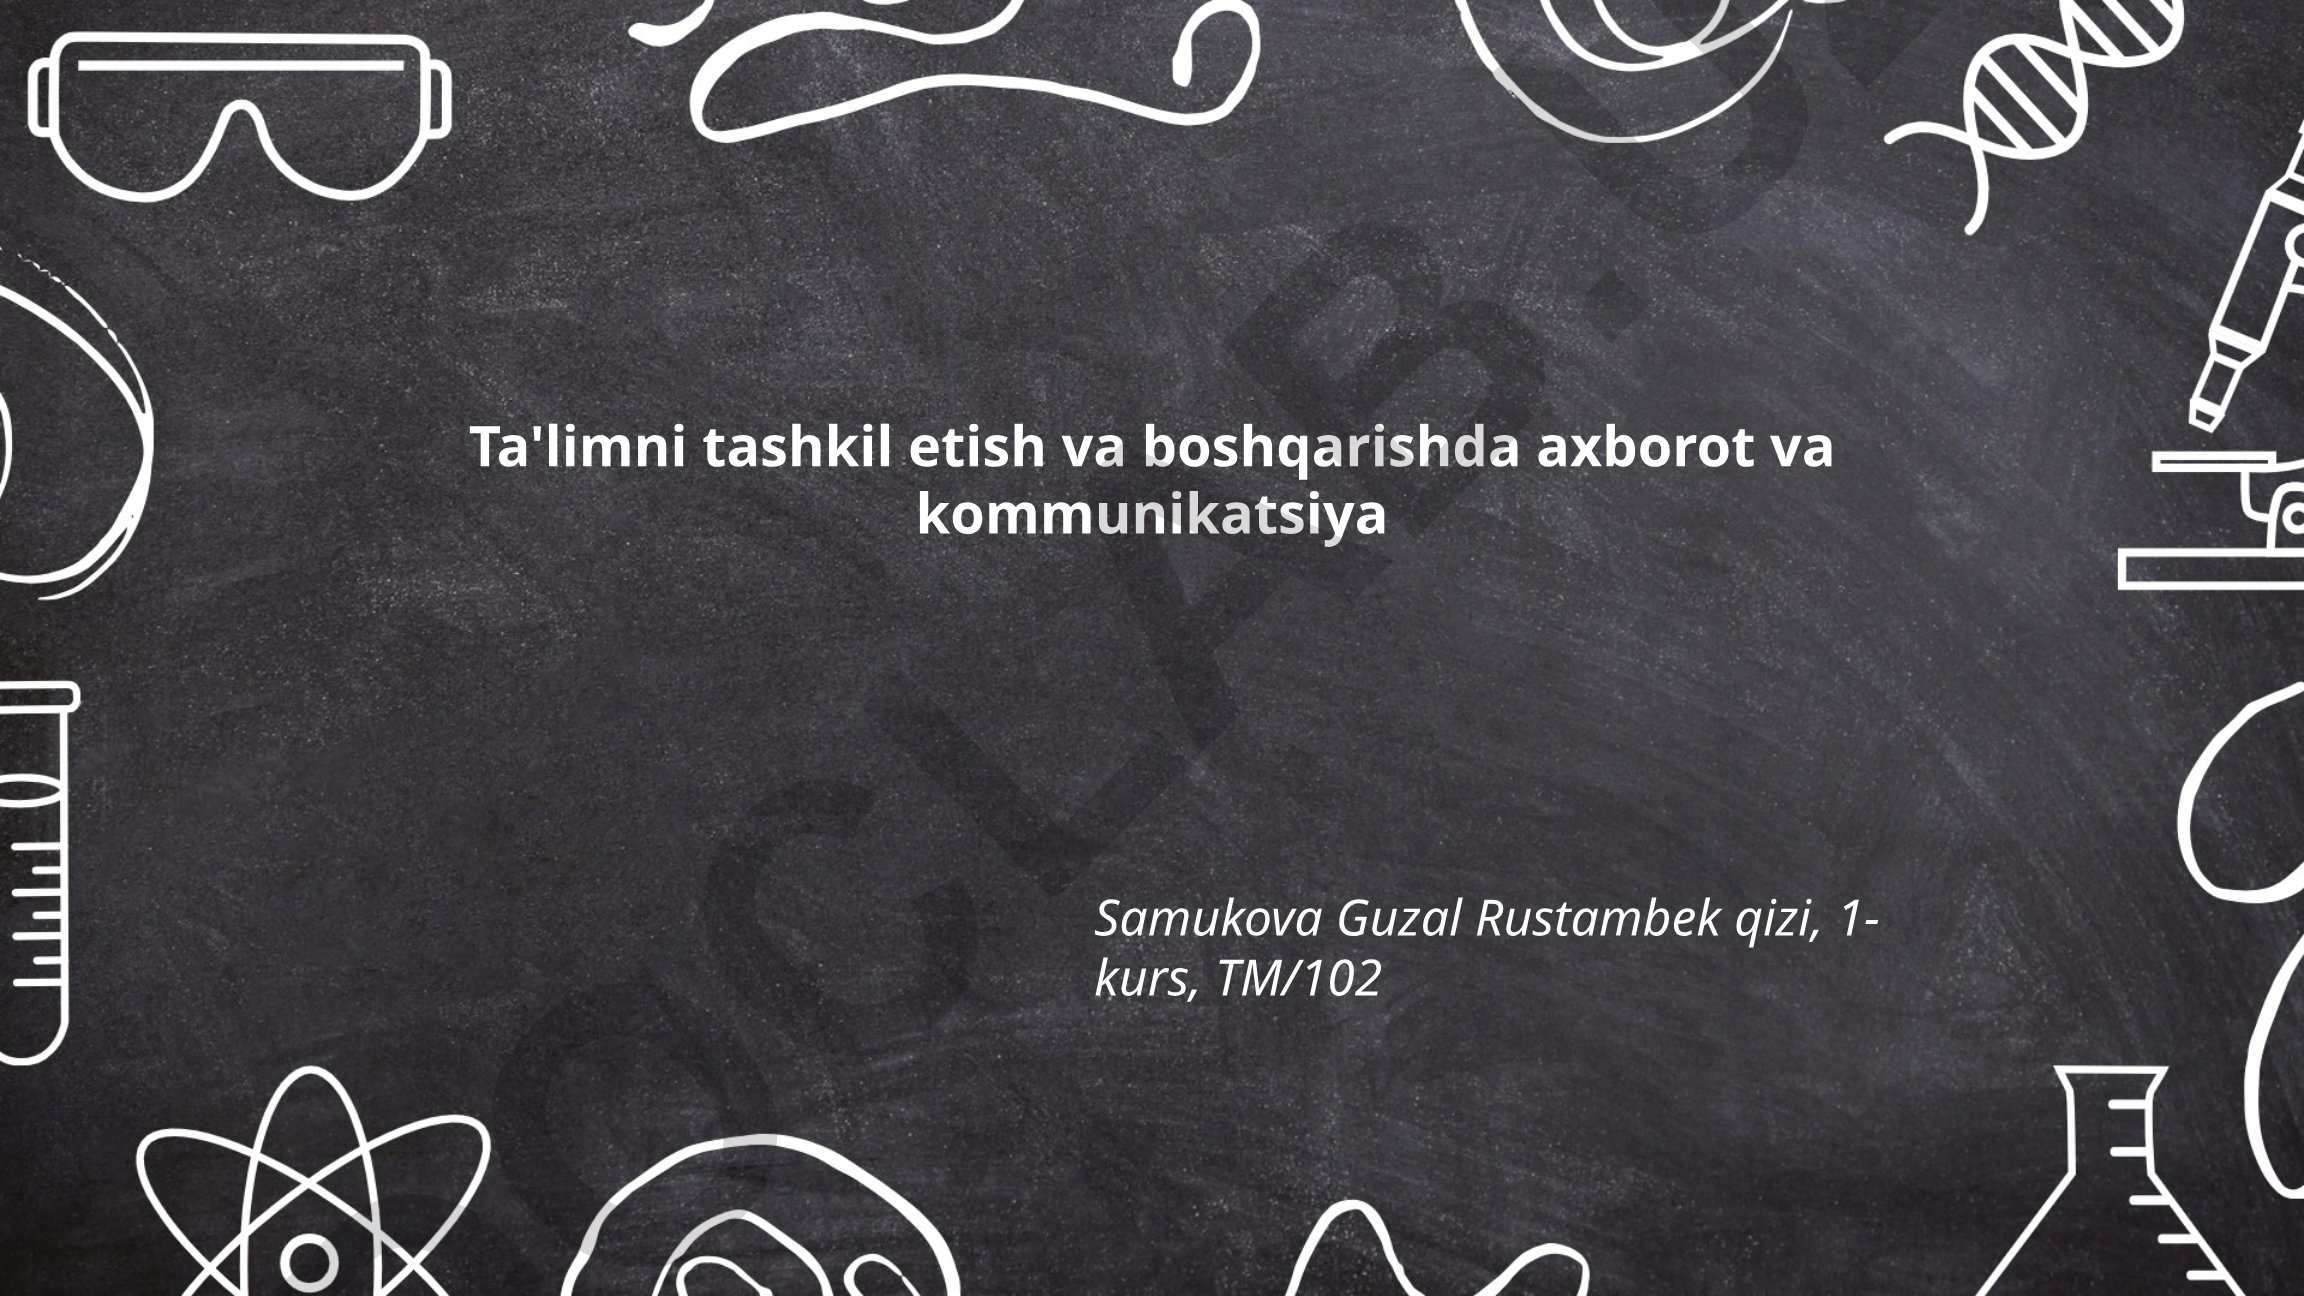 Ta'limni tashkil etish va boshqarishda axborot va
kommunikatsiya
Samukova Guzal Rustambek qizi, 1-
kurs, TM/102